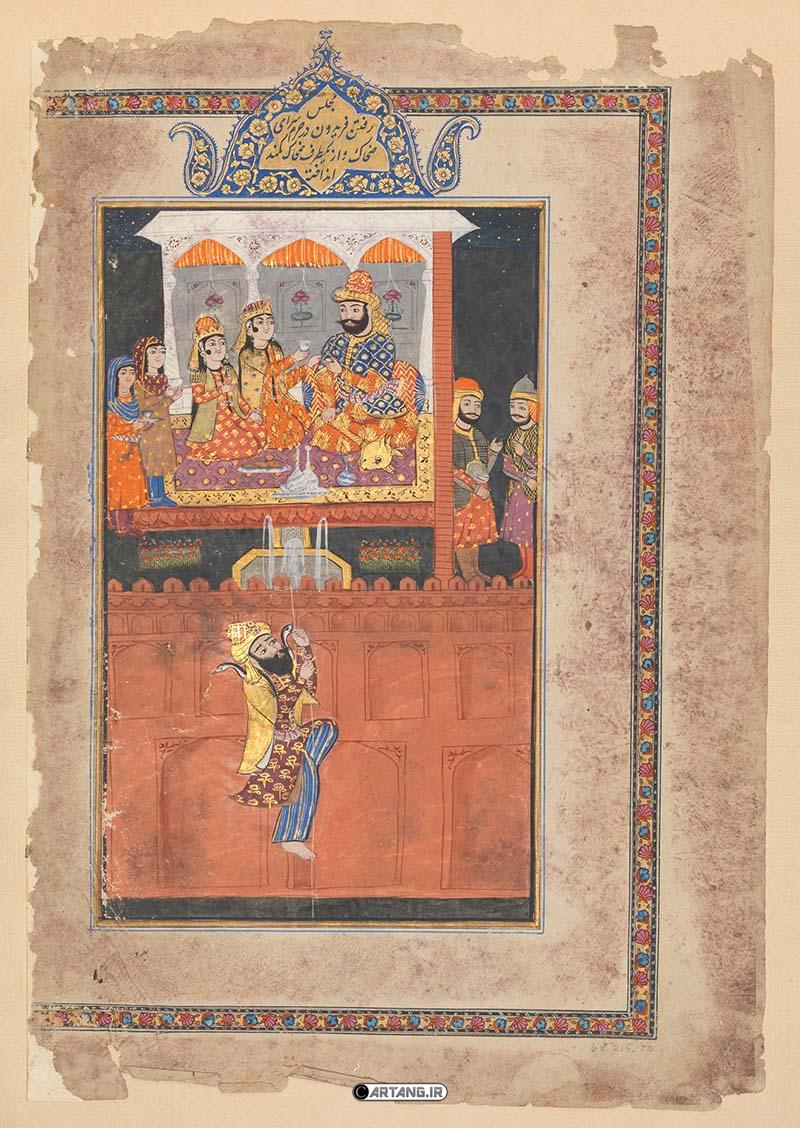 مجلس
رفتن فریدون در حرم سرای
ضحاک و از یکطرف ضحاک کمند
انداختن
ARTANG.IR